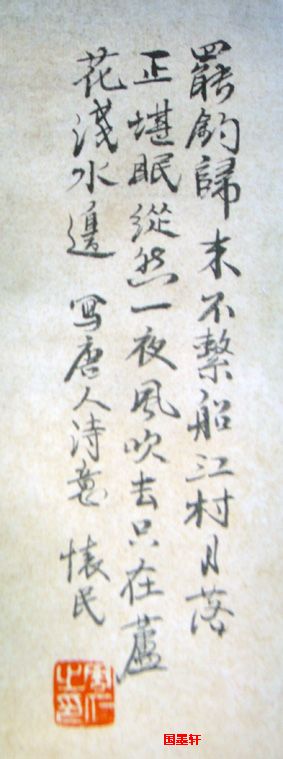 罷釣歸来不繫船江村月落
正堪眠從然一夜風吹去只在蘆
花淺水邊 写唐人诗意 懷民
国墨轩